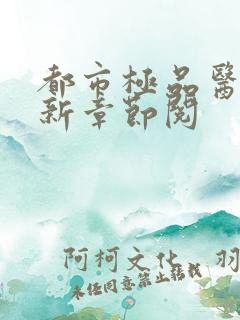 都市極品醫
新章節閱
阿柯文化 羽
未經同意禁止轉載